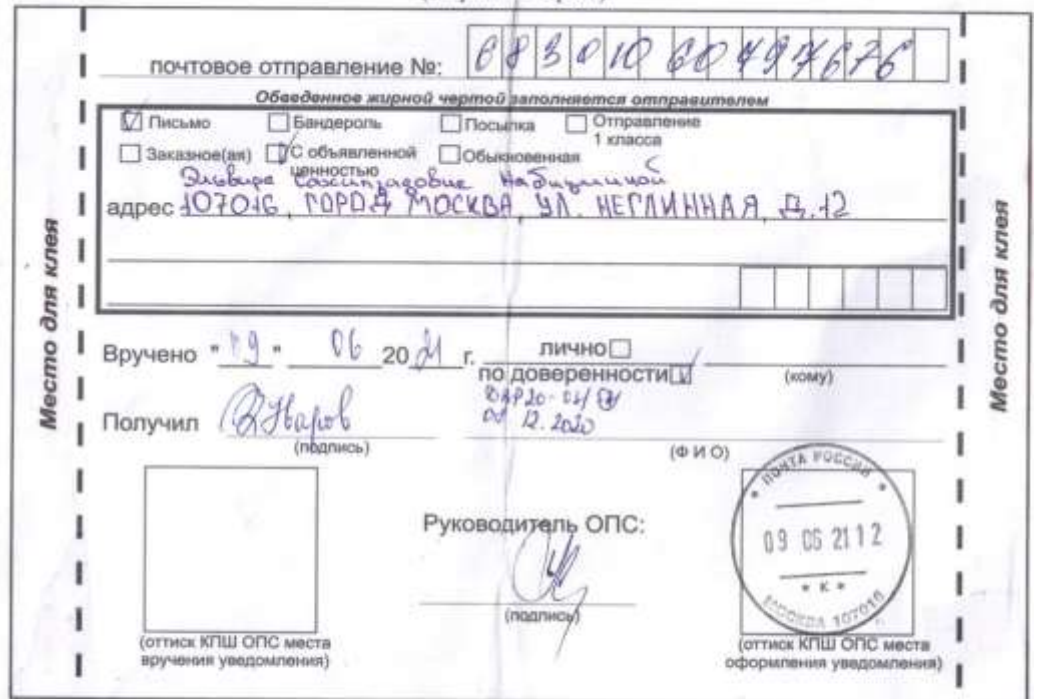 почтовое отправление №: 68301060797676
Обведенное жирной чертой заполняется отправителем
Письмо Бандероль Посылка Отправление 1 класса
Заказное(ая) С объявленной ценностью Обыкновенная
Эльвире Сахипзадовне Набиуллиной
адрес 107016, ГОРОД МОСКВА, УЛ. НЕГЛИННАЯ, Д.12
Место для клея
Место для клея
Вручено "09" 06 2021 г. лично
по доверенности (кому)
12.2020
Получил
(подпись) (Ф И О)
Руководитель ОПС:
(подпись)
ПОЧТА РОССИИ
09 06 21 12
К
МОСКВА 107016
(оттиск КПШ ОПС места
вручения уведомления)
(оттиск КПШ ОПС места
оформления уведомления)